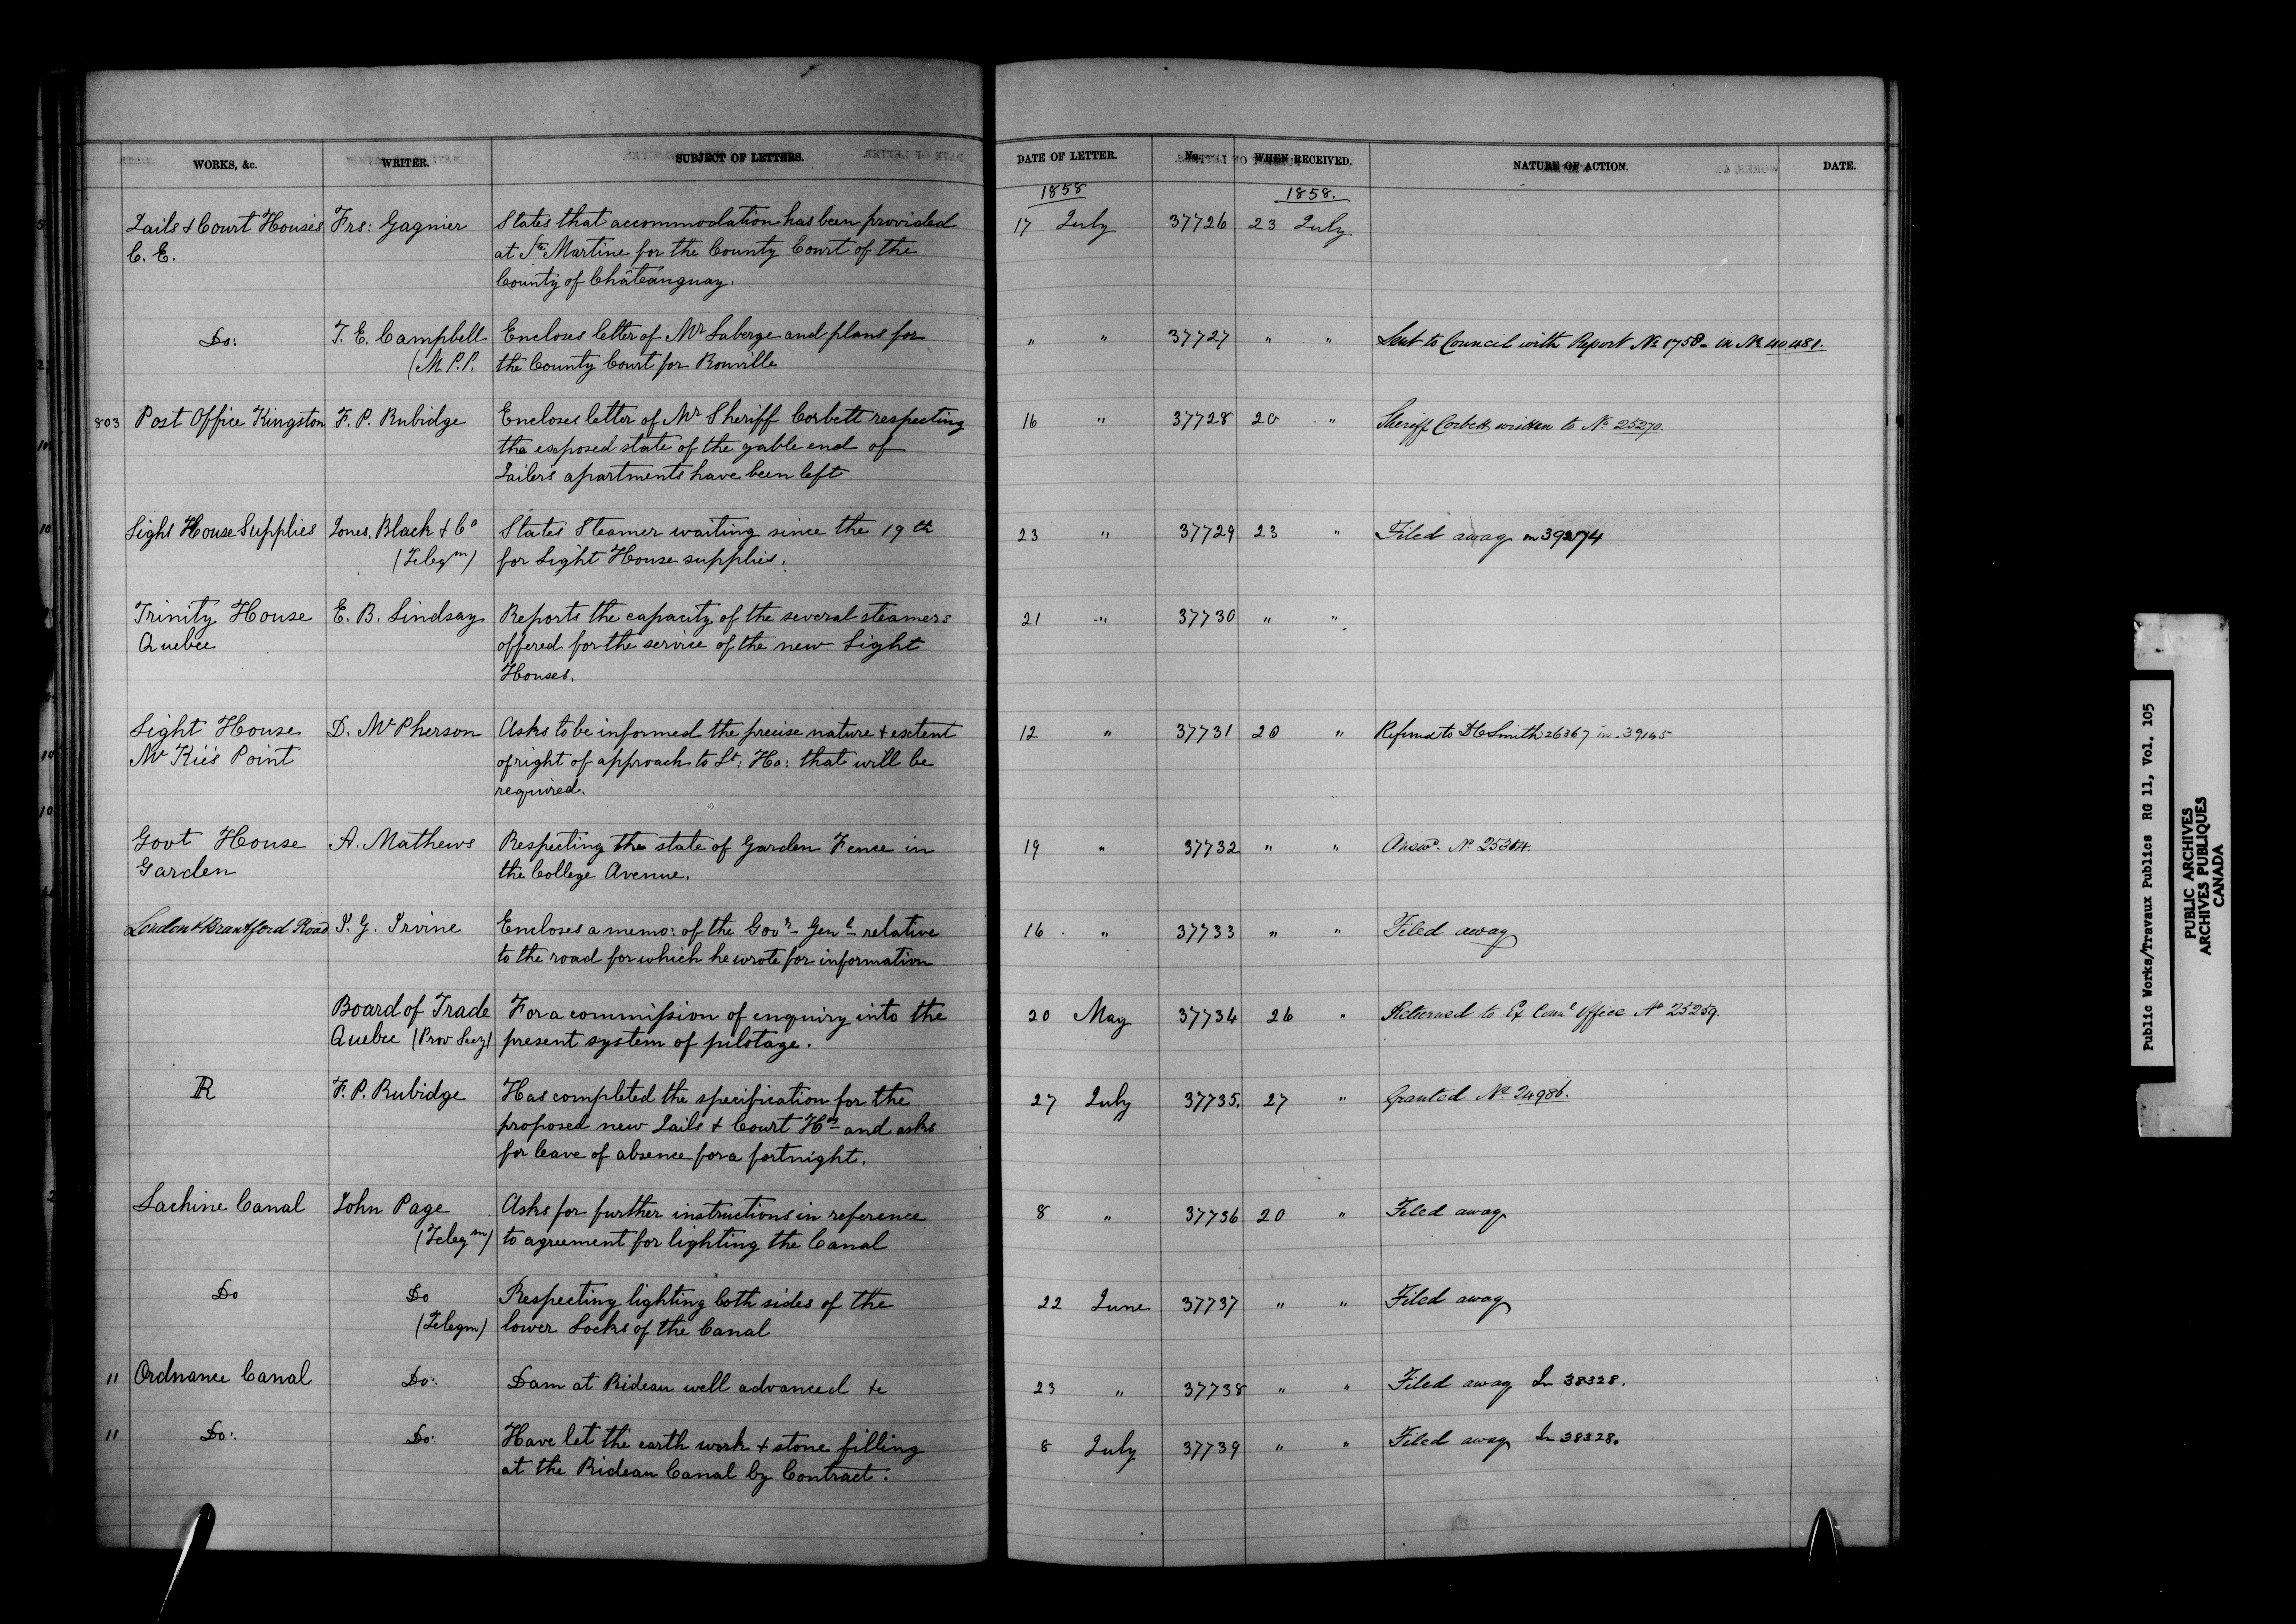 WORKS, &c. WRITER. SUBJECT OF LETTERS. DATE OF LETTER. No. WHEN RECEIVED. NATURE OF ACTION. DATE.
1858 1858.
Jails & Court Houses Frs: Gagnier States that accommodation has been provided 17 July 37726 23 July
C. E. at Ste Martine for the County Court of the
County of Châteauguay.
Do: T. E. Campbell Encloses letter of Mr Laberge and plans for " " 37727 " " Sent to Council with Report No 1758 - in No 40481.
(M.P.P. the County Court for Rouville
803 Post Office Kingston F. P. Rubidge Encloses letter of Mr Sheriff Corbett respecting 16 " 37728 20 " Sheriff Corbett written to No 25270.
the exposed state of the gable end of
Jailers apartments have been left
Light House Supplies Jones, Black & Co States Steamer waiting since the 19th 23 " 37729 23 " Filed away in 39274
(Telegm) for Light House supplies.
Trinity House E. B. Lindsay Reports the capacity of the several steamers 21 " 37730 " "
Quebec offered for the service of the new Light
Houses.
Light House D. McPherson Asks to be informed the precise nature & extent 12 " 37731 20 " Referred to D C Smith 26367 in 39145
McKie's Point of right of approach to Lt: Ho: that will be
required.
Govt House A. Mathews Respecting the state of Garden Fence in 19 " 37732 " " Answd. No 25304.
Garden the College Avenue.
London & Brantford Road J. G. Irvine Encloses a memo: of the Govr- Genl relative 16 " 37733 " " Filed away
to the road for which he wrote for information
Board of Trade For a commission of enquiry into the 20 May 37734 26 " Returned to Ex Counl Office No 25259.
Quebec (Prov Secy) present system of pilotage.
R F. P. Rubidge Has completed the specification for the 27 July 37735. 27 " Granted No 24986.
proposed new Jails & Court Hos and asks
for leave of absence for a fortnight.
Lachine Canal John Page Asks for further instructions in reference 8 " 37736 20 " Filed away
(Telegm) to agreement for lighting the Canal
Do Do Respecting lighting both sides of the 22 June 37737 " " Filed away
(Telegm) lower Locks of the Canal
11 Ordnance Canal Do: Dam at Rideau well advanced &c 23 " 37738 " " Filed away In 38328.
11 Do: Do: Have let the earth work & stone filling 8 July 37739 " " Filed away In 38328.
at the Rideau Canal by Contract.
Public Works/Travaux Publics RG 11, Vol. 105
PUBLIC ARCHIVES
ARCHIVES PUBLIQUES
CANADA